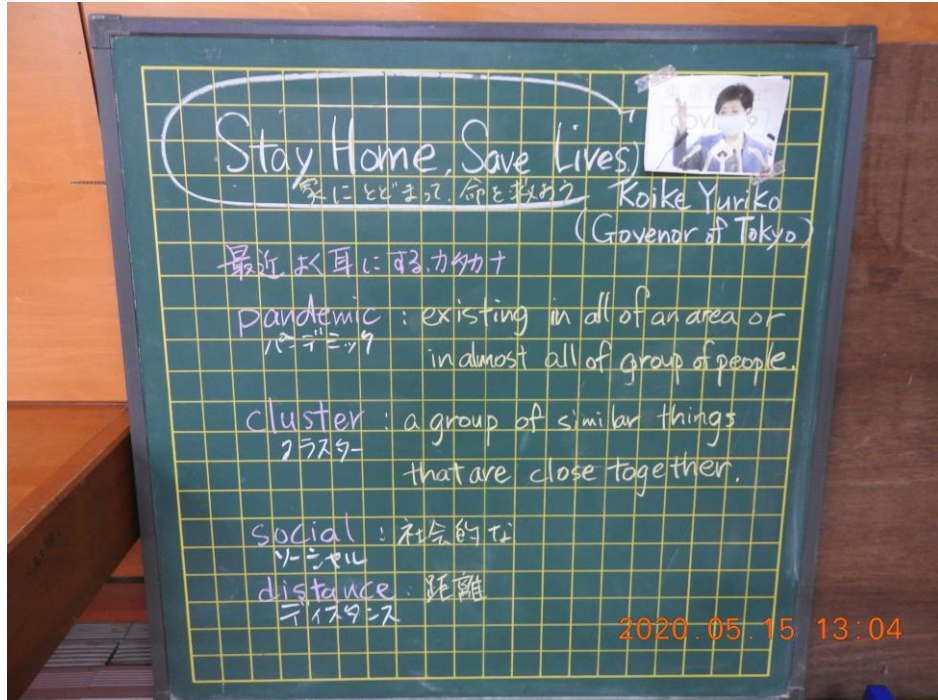 Stay Home, Save Lives.
家にとどまって、命を救おう
COVID-19
Koike Yuriko
(Govenor of Tokyo)
最近よく耳にする、カタカナ
pandemic : existing in all of an area or
パンデミック
in almost all of group of people.
cluster : a group of similar things
クラスター
that are close together.
social : 社会的な
ソーシャル
distance : 距離
ディスタンス
2020.05.15 13:04